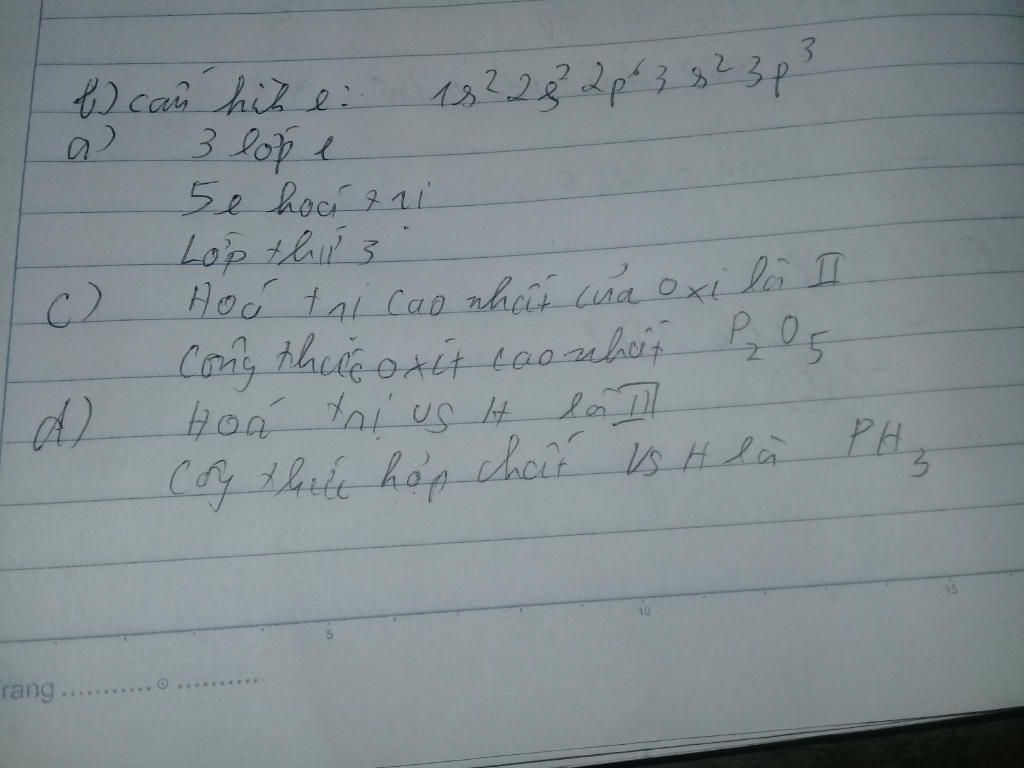 b) cấu hìh e: 1s² 2s² 2p⁶ 3s² 3p³
a) 3 lớp e
5e hoá trị
Lớp thứ 3
c) Hoá trị cao nhất của oxi là II
Công thức oxit cao nhất P₂O₅
d) Hoá trị vs H là III
Côg thức hợp chất vs H là PH₃
15
10
5
rang ............⊙...........